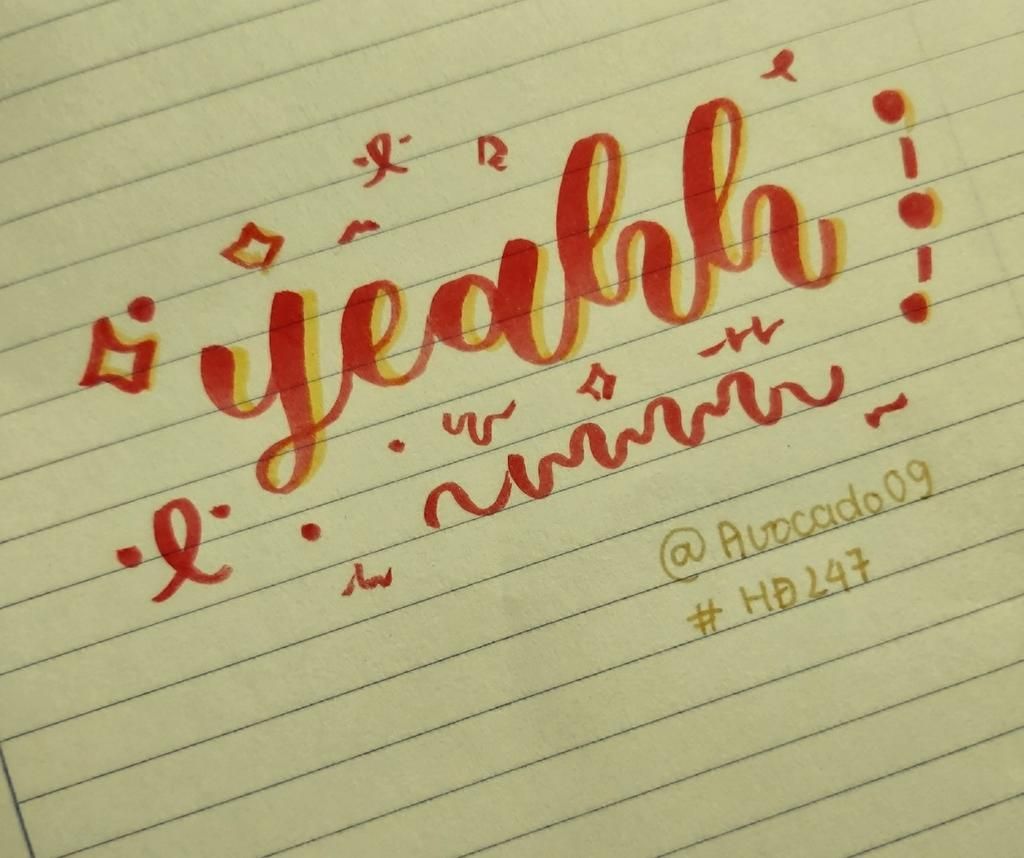 yeahh
@Avocado09
# HĐ247